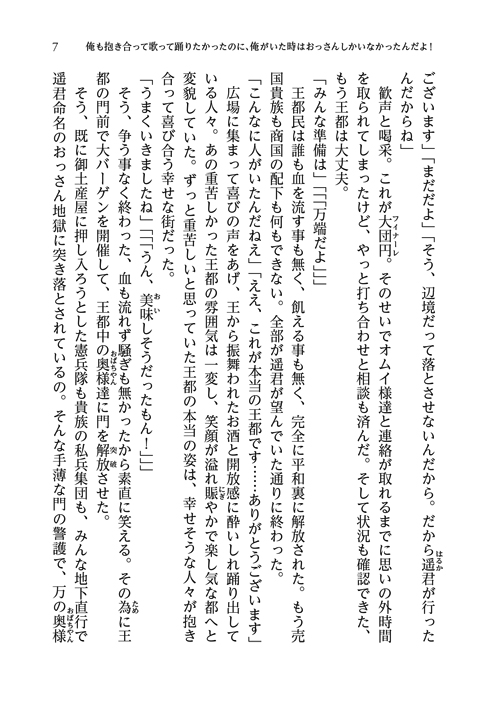 7 俺も抱き合って歌って踊りたかったのに、俺がいた時はおっさんしかいなかったんだよ！
ございます」「まだだよ」「そう、辺境だって落とさせないんだから。だから遥君が行った
んだからね」
歓声と喝采。これが大団円。そのせいでオムイ様達と連絡が取れるまでに思いの外時間
を取られてしまったけど、やっと打ち合わせと相談も済んだ。そして状況も確認できた、
もう王都は大丈夫。
「みんな準備は」「「「万端だよ」」」
王都民は誰も血を流す事も無く、飢える事も無く、完全に平和裏に解放された。もう売
国貴族も商国の配下も何もできない。全部が遥君が望んでいた通りに終わった。
「こんなに人がいたんだねえ」「ええ、これが本当の王都です……ありがとうございます」
広場に集まって喜びの声をあげ、王から振舞われたお酒と開放感に酔いしれ踊り出して
いる人々。あの重苦しかった王都の雰囲気は一変し、笑顔が溢れ賑やかで楽し気な都へと
変貌していた。ずっと重苦しいと思っていた王都の本当の姿は、幸せそうな人々が抱き
合って喜び合う幸せな街だった。
「うまくいきましたね」「「「うん、美味しそうだったもん！」」」
そう、争う事なく終わった、血も流れず騒ぎも無かったから素直に笑える。その為に王
都の門前で大バーゲンを開催して、王都中の奥様達に門を解放させた。
そう、既に御土産屋に押し入ろうとした憲兵隊も貴族の私兵集団も、みんな地下直行で
遥君命名のおっさん地獄に突き落とされているの。そんな手薄な門の警護で、万の奥様